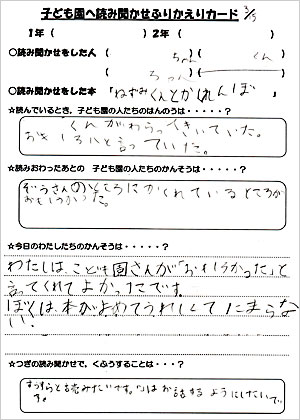 子ども園へ読み聞かせふりかえりカード 3/5
1年（　　　　）2年（　　　　）
○読み聞かせをした人（　ちゃん　）（　くん　）
（　ちゃん　）（　　）
○読み聞かせをした本「ねずみくんとかくれんぼ」
☆読んでいるとき、子ども園の人たちのはんのうは・・・・・？
くんがわらってきいていた。
おもしろいと言っていた。
☆読みおわったあとの 子ども園の人たちのかんそうは・・・・・？
ぞうさんのいところにかくれているところが
おもしろかった。
☆今日のわたしたちのかんそうは・・・・・？
わたしは、こども園さんが「おもしろかった」と
言ってくれてよかったです。
ぼくは、本がよめてうれしくてたまらな
い。
☆つぎの読み聞かせで、くふうすることは・・・？
読みたいです。お話するようにしたいで
す。